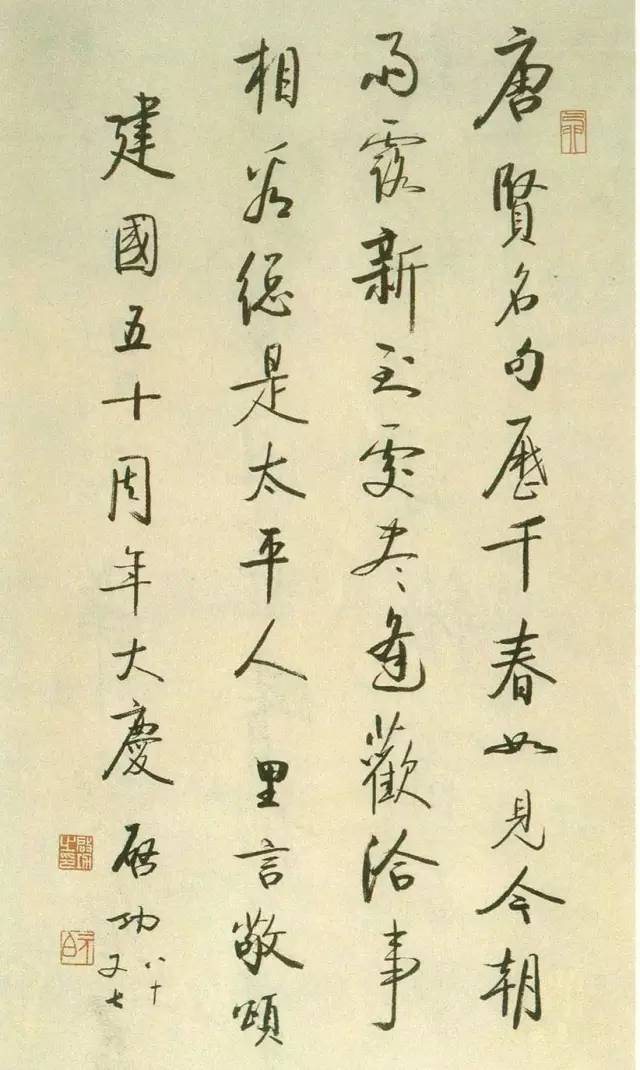 唐賢名句歷千春如見今朝
雨露新到處盡逢歡洽事
相看總是太平人 里言敬頌
建國五十周年大慶 启功
八十
又七